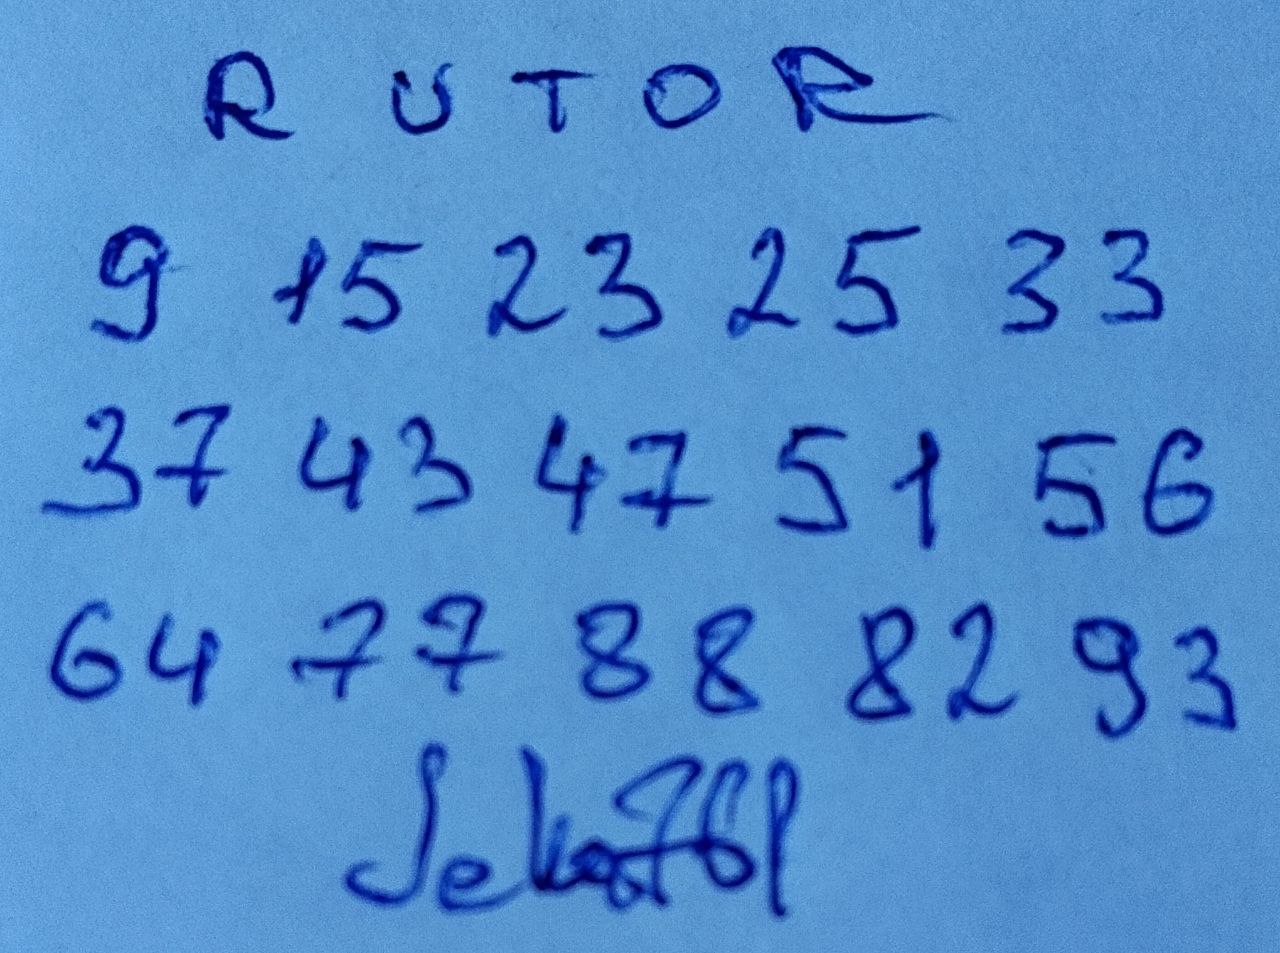 R U T O R
9 15 23 25 33
37 43 47 51 56
64 77 88 82 93